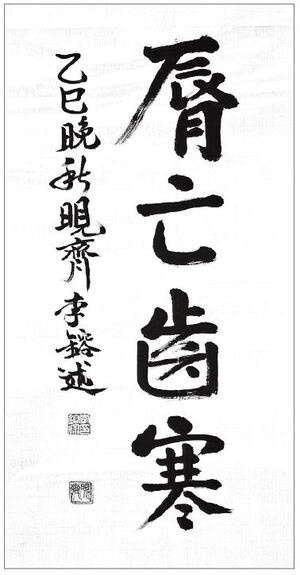 脣亡齒寒
乙巳晚秋晛齊李鎔述